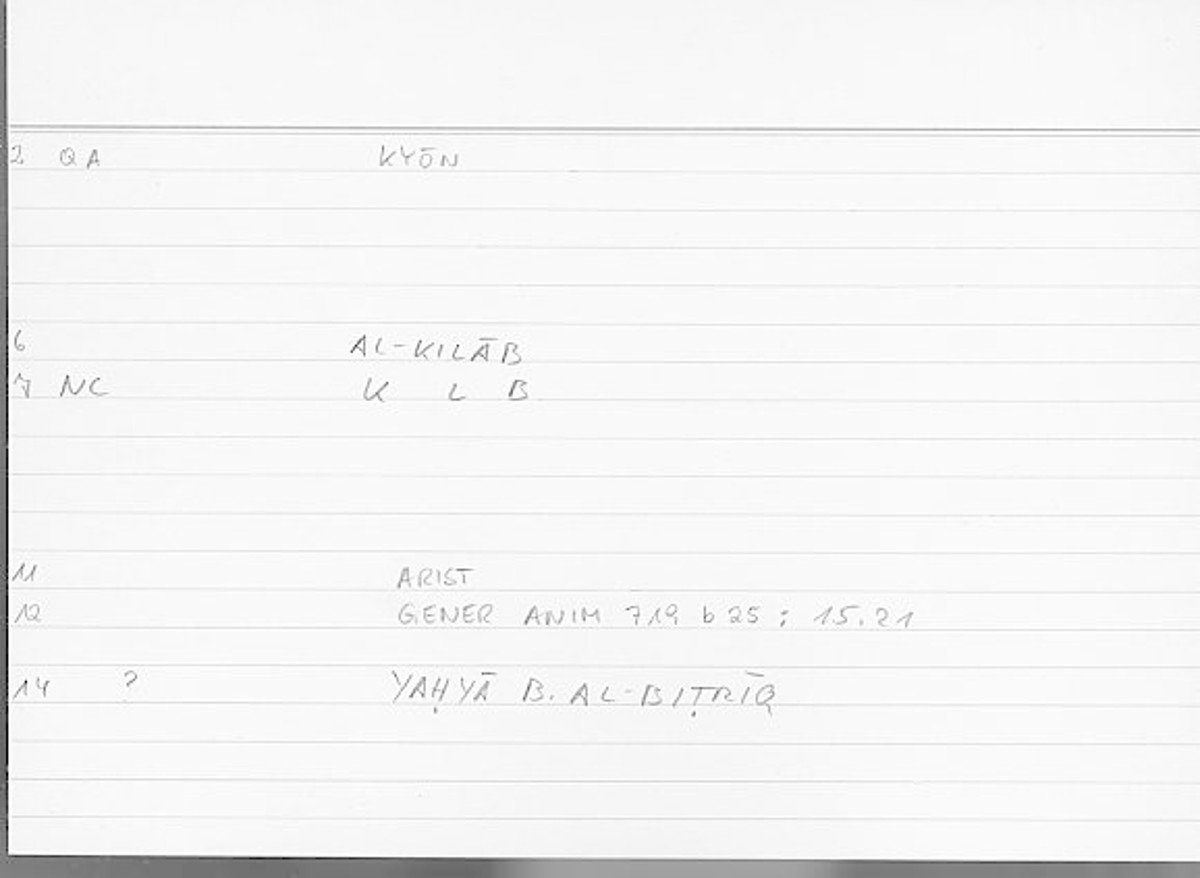 2 QA KYŌN
6 AL-KILĀB
7 NC K L B
11 ARIST
12 GENER ANIM 719 b 25 ; 15.21
14 ? YAḤYĀ B. AL-BIṬRĪQ